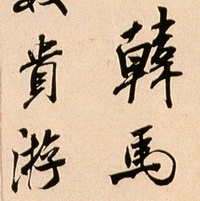 韓馬
貴游